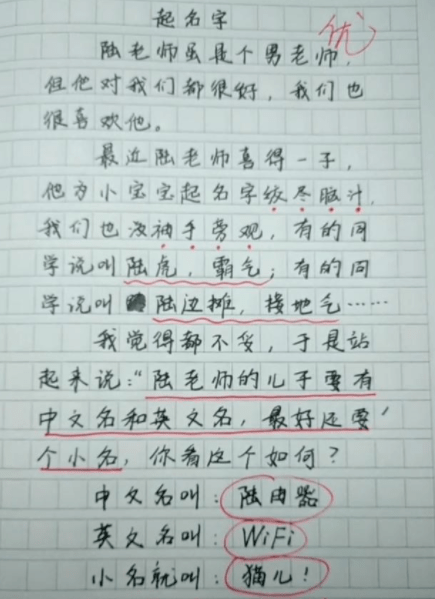 起名字
优
陆老师虽是个男老师,
但他对我们都很好,我们也
很喜欢他。
最近陆老师喜得一子,
他为小宝宝起名字绞尽脑汁,
我们也没袖手旁观,有的同
学说叫陆虎,霸气;有的同
学说叫陆边摊,接地气……
我觉得都不妥,于是站
起来说:“陆老师的儿子要有
中文名和英文名,最好还要
个小名,你看这个如何?
中文名叫:陆由器
英文名叫:WiFi
小名就叫:猫儿!